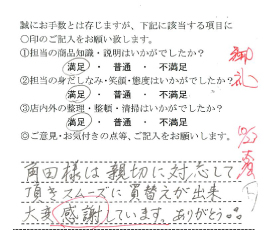 誠にお手数とは存じますが、下記に該当する項目に
〇印のご記入をお願い致します。
①担当の商品知識・説明はいかがでしたか？
満足 ・ 普通 ・ 不満足
②担当の身だしなみ・笑顔・態度はいかがでしたか？
満足 ・ 普通 ・ 不満足
③店内外の整理・整頓・清掃はいかがでしたか？
満足 ・ 普通 ・ 不満足
◎ご意見・お気付きの点等、ご記入をお願いします。
角田様は親切に対応して
頂きスムーズに買替えが出来
大変感謝しています。ありがとう
御礼